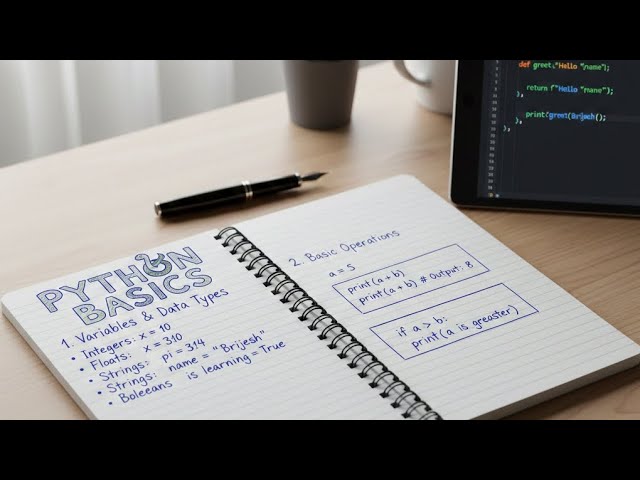 PYTHON
BASICS
1. Variables & Data Types
• Integers: x = 10
• Floats: x = 310
• Strings: pi = 314
• Strings: name = "Brijesh"
• Boleeans is learning = True
2. Basic Operations
a = 5
print(a + b)
print(a + b) # Output: 8
if a > b:
print(a is greaster)
def greet:"Hello "name";
return f"Hello "mane");
},
print(greet(Brijesh();
},